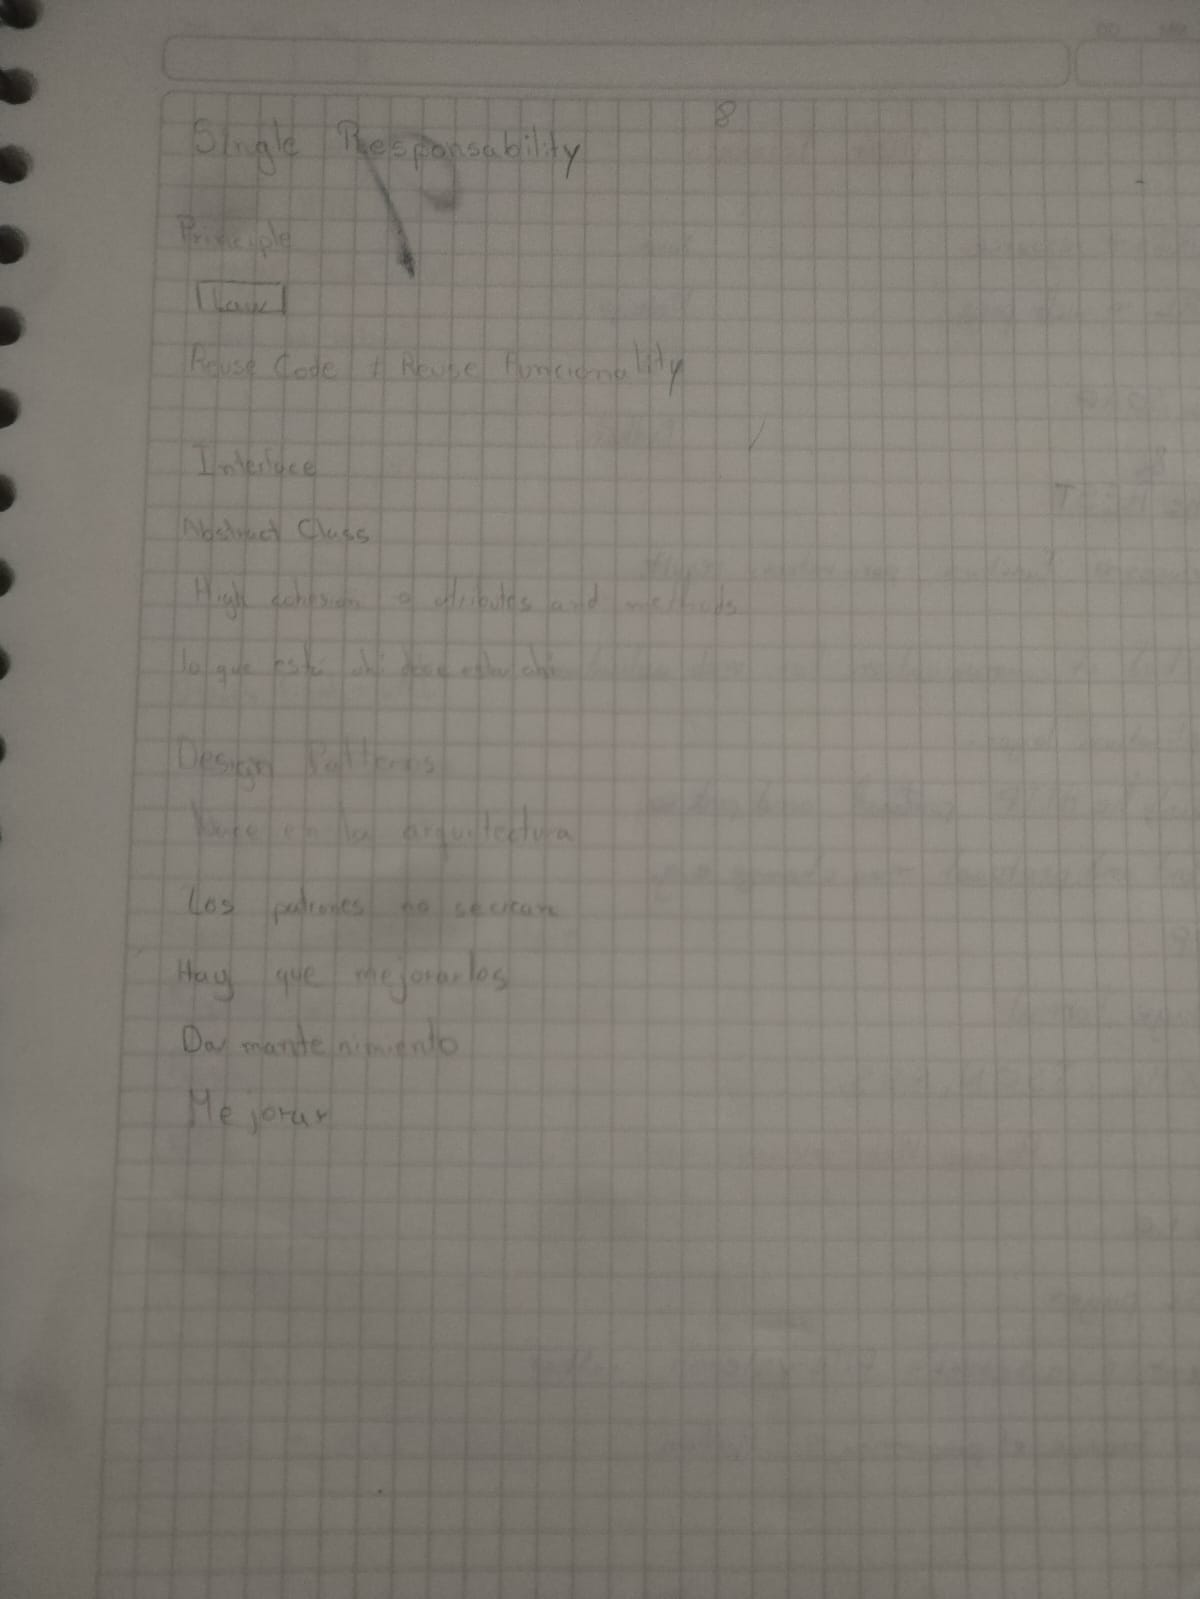 8
Single Responsability
Principle
Law
Reuse Code + Reuse Funcionality
Interface
Abstract Class
High cohesion atributes and methods
lo que está ahí debe estar ahí
Design Patterns
en la arquitectura
Los patrones no se
Hay que mejorarlos
Da mantenimiento
Mejorar